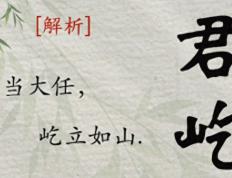 [解析]
当大任，
屹立如山.
君
屹